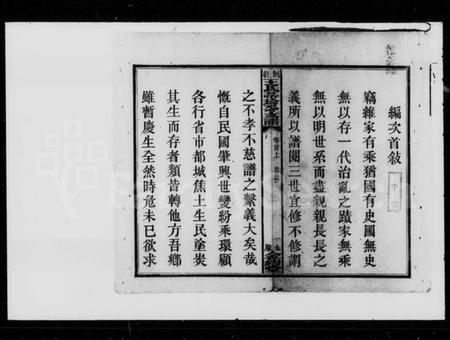 編次首敘
竊維家有乘猶國有史國無史
無以存一代治亂之蹟家無乘
無以明世系而盡親親長長之
義所以譜閱三世宜修不修謂
之不孝不慈譜之繫義大矣哉
慨自民國肇興世變紛乘環顧
各行省市都城焦土生民塗炭
其生而存者類皆轉他方吾鄉
雖暫慶生全然時危未已欲求